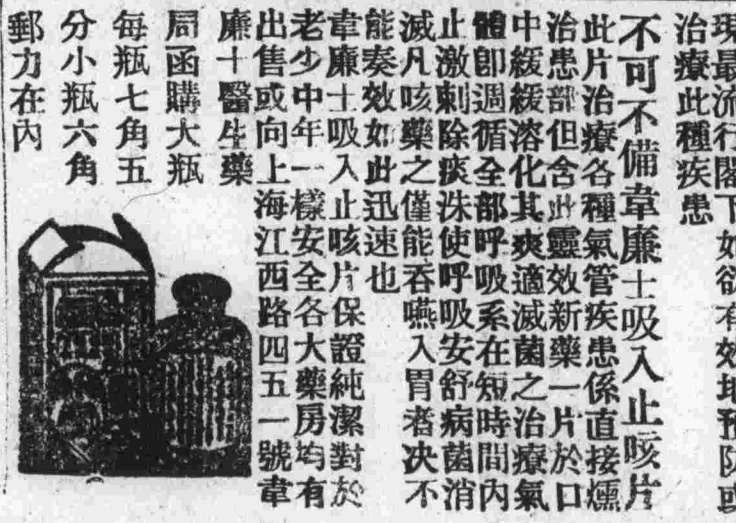 現最流行閣下如欲有效地預防或
治療此種疾患
不可不備韋廉士吸入止咳片
此片治療各種氣管疾患係直接燻
治患部但含此靈效新藥一片於口
中緩緩溶化其爽適滅菌之治療氣
體卽週循全部呼吸系在短時間內
止激刺除痰洙使呼吸安舒病菌消
滅凡咳藥之僅能吞嚥入胃者决不
能奏效如此迅速也
韋廉士吸入止咳片保證純潔對於
老少中年一樣安全各大藥房均有
出售或向上海江西路四五一號韋
廉士醫生藥
局函購大瓶
每瓶七角五
分小瓶六角
郵力在內